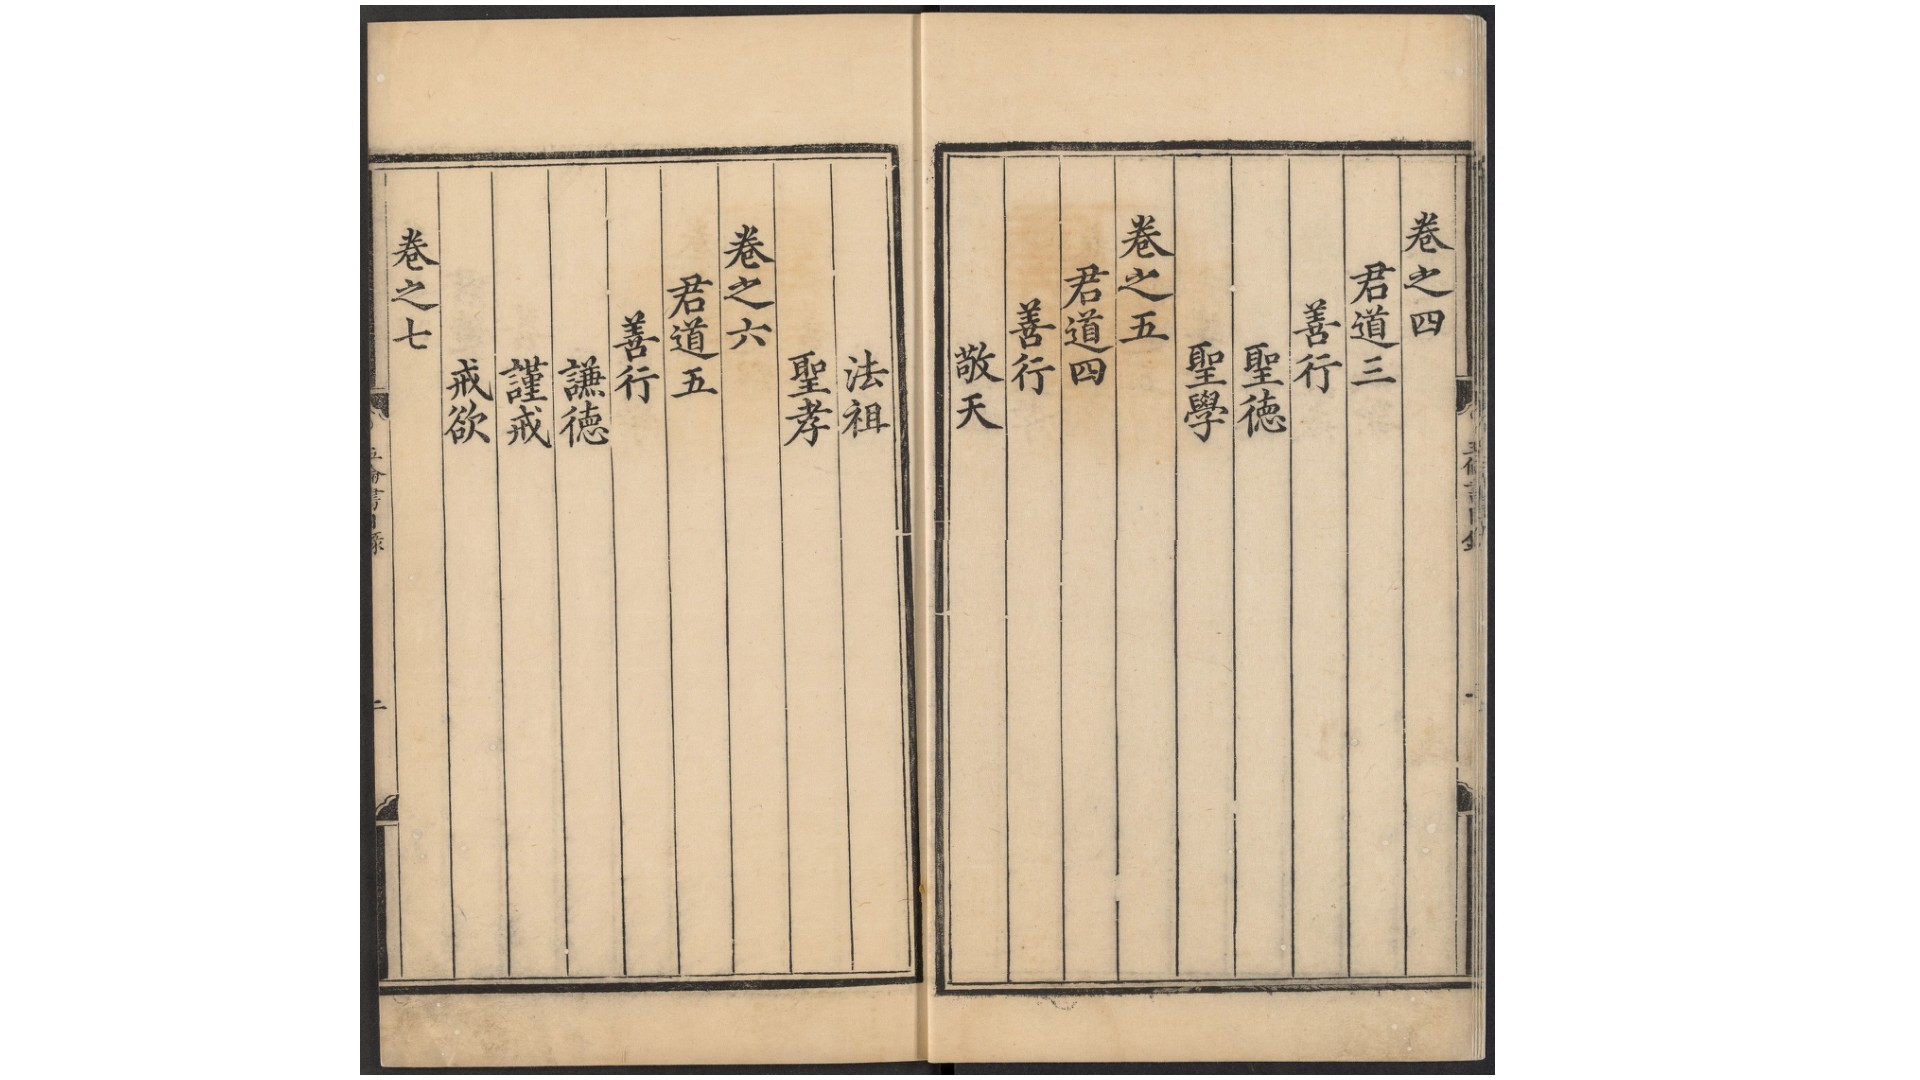 卷之四
君道三
善行
聖德
聖學
卷之五
君道四
善行
敬天
法祖
聖孝
卷之六
君道五
善行
謙德
謹戒
戒欲
卷之七
五倫書目錄
二